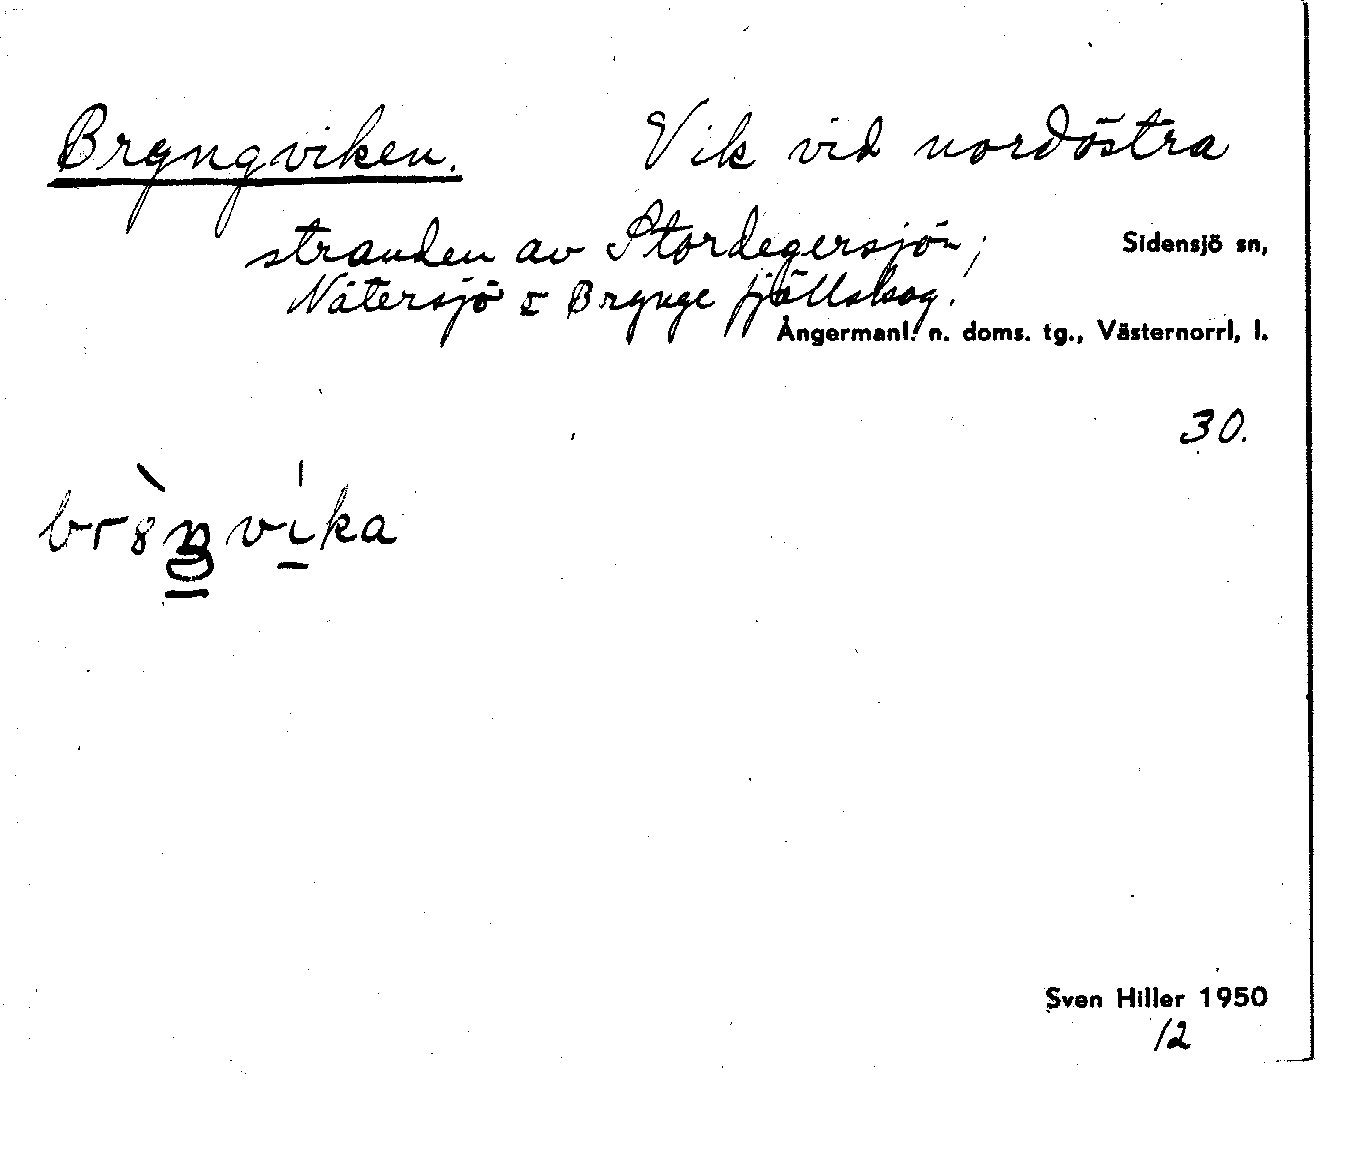 Bryngviken. Vik vid nordöstra
stranden av Stordegersjön;
Sidensjö sn,
Nätersjö o Brynge fjällskog.
Ångermanl. n. doms. tg., Västernorrl. l.
30.
Sven Hiller 1950
12